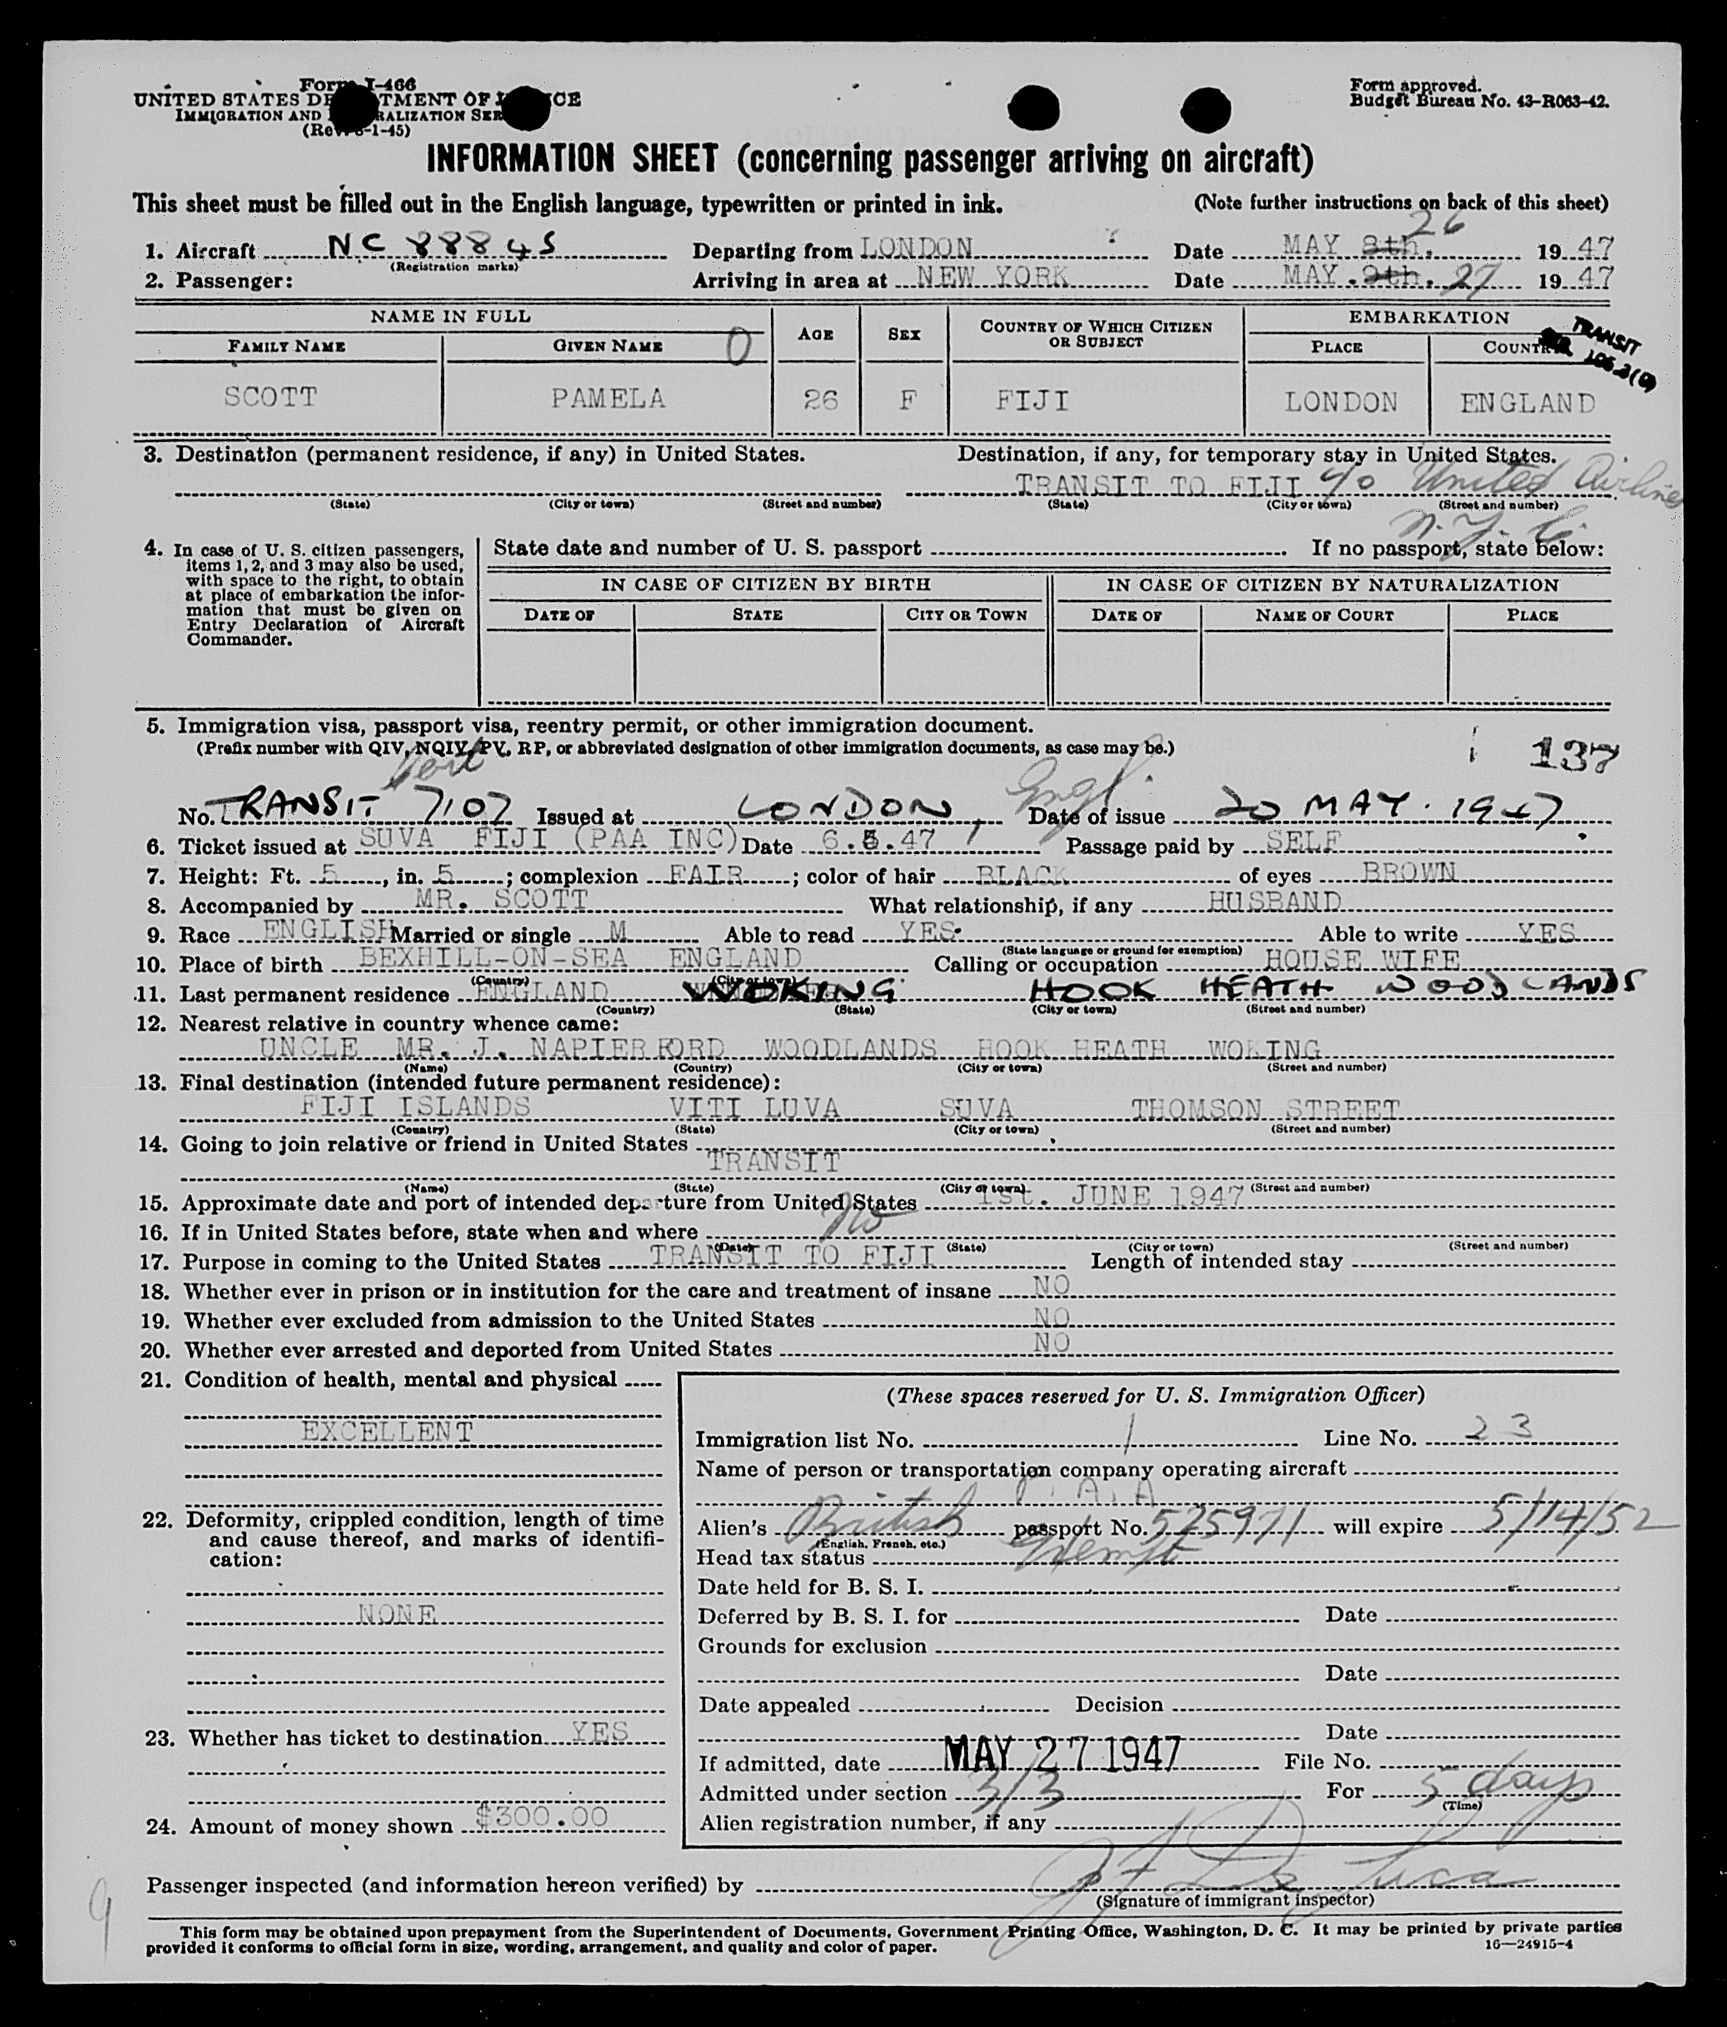 Form I-466
UNITED STATES DEPARTMENT OF JUSTICE
IMMIGRATION AND NATURALIZATION SERVICE
(Rev. -1-45)
Form approved.
Budget Bureau No. 43-R063-42.
INFORMATION SHEET (concerning passenger arriving on aircraft)
This sheet must be filled out in the English language, typewritten or printed in ink. (Note further instructions on back of this sheet)
26
1. Aircraft NC 88845 Departing from LONDON Date MAY 8th. 19 47
(Registration marks)
2. Passenger: Arriving in area at NEW YORK Date MAY 9th. 27 19 47
NAME IN FULL AGE SEX COUNTRY OF WHICH CITIZEN OR SUBJECT EMBARKATION
FAMILY NAME GIVEN NAME O PLACE COUNTRY
TRANSIT
SCOTT PAMELA 26 F FIJI LONDON ENGLAND
3. Destination (permanent residence, if any) in United States. Destination, if any, for temporary stay in United States.
TRANSIT TO FIJI c/o United Airlines
(State) (City or town) (Street and number) (State) (City or town) (Street and number)
N.Y. C.
4. In case of U. S. citizen passengers, items 1, 2, and 3 may also be used, with space to the right, to obtain at place of embarkation the information that must be given on Entry Declaration of Aircraft Commander.
State date and number of U. S. passport If no passport, state below:
IN CASE OF CITIZEN BY BIRTH IN CASE OF CITIZEN BY NATURALIZATION
DATE OF STATE CITY OR TOWN DATE OF NAME OF COURT PLACE
5. Immigration visa, passport visa, reentry permit, or other immigration document.
(Prefix number with QIV, NQIV, PV, RP, or abbreviated designation of other immigration documents, as case may be.)
137
Cert Engl.
No. TRANSIT 7107 Issued at LONDON, Date of issue 20 MAY. 1947
6. Ticket issued at SUVA FIJI (PAA INC) Date 6.5.47 Passage paid by SELF
7. Height: Ft. 5, in. 5; complexion FAIR; color of hair BLACK of eyes BROWN
8. Accompanied by MR. SCOTT What relationship, if any HUSBAND
9. Race ENGLISH Married or single M Able to read YES Able to write YES
(State language or ground for exemption)
10. Place of birth BEXHILL-ON-SEA ENGLAND Calling or occupation HOUSE WIFE
(Country) (City or town)
11. Last permanent residence ENGLAND WOKING HOOK HEATH WOODLANDS
(Country) (State) (City or town) (Street and number)
12. Nearest relative in country whence came:
UNCLE MR. J. NAPIER FORD WOODLANDS HOOK HEATH WOKING
(Name) (Country) (City or town) (Street and number)
13. Final destination (intended future permanent residence):
FIJI ISLANDS VITI LUVA SUVA THOMSON STREET
(Country) (State) (City or town) (Street and number)
14. Going to join relative or friend in United States
TRANSIT
(Name) (State) (City or town) (Street and number)
15. Approximate date and port of intended departure from United States 1st. JUNE 1947
16. If in United States before, state when and where No
(Date) (State) (City or town) (Street and number)
17. Purpose in coming to the United States TRANSIT TO FIJI Length of intended stay
18. Whether ever in prison or in institution for the care and treatment of insane NO
19. Whether ever excluded from admission to the United States NO
20. Whether ever arrested and deported from United States NO
21. Condition of health, mental and physical
EXCELLENT
22. Deformity, crippled condition, length of time and cause thereof, and marks of identification:
NONE
23. Whether has ticket to destination YES
24. Amount of money shown $300.00
(These spaces reserved for U. S. Immigration Officer)
Immigration list No. 1 Line No. 23
Name of person or transportation company operating aircraft
P. A. A
Alien's British passport No. 525971 will expire 5/14/52
(English, French, etc.)
Head tax status Exempt
Date held for B. S. I.
Deferred by B. S. I. for Date
Grounds for exclusion
Date
Date appealed Decision
Date
If admitted, date MAY 27 1947 File No.
Admitted under section 3/3 For 5 days
(Time)
Alien registration number, if any
Passenger inspected (and information hereon verified) by
(Signature of immigrant inspector)
9
This form may be obtained upon prepayment from the Superintendent of Documents, Government Printing Office, Washington, D. C. It may be printed by private parties
provided it conforms to official form in size, wording, arrangement, and quality and color of paper.
16—24915-4